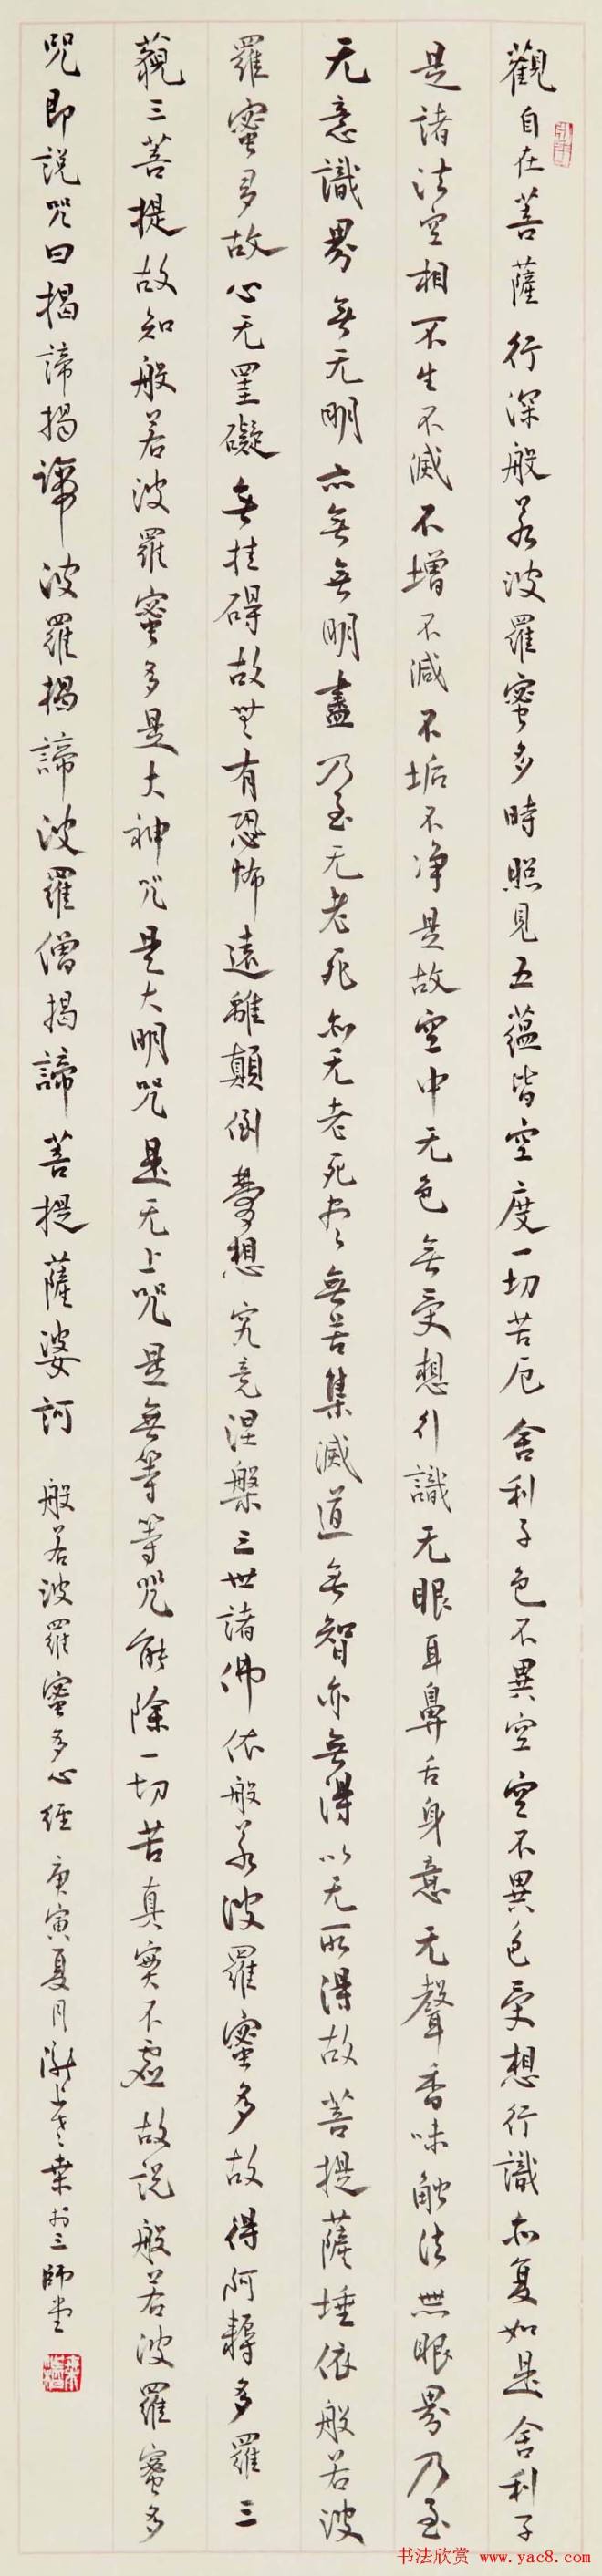 觀自在菩薩行深般若波羅蜜多時照見五蘊皆空度一切苦厄舍利子色不異空空不異色受想行識亦复如是舍利子
是諸法空相不生不滅不增不減不垢不净是故空中无色無受想行識无眼耳鼻舌身意无聲香味觸法無眼界乃至
无意識界無无明亦無無明盡乃至无老死亦无老死尽無苦集滅道無智亦無得以无所得故菩提薩埵依般若波
羅蜜多故心无罣礙無挂碍故無有恐怖遠離顛倒夢想究竟涅槃三世諸佛依般若波羅蜜多故得阿耨多羅三
藐三菩提故知般若波羅蜜多是大神咒是大明咒是无上咒是無等等咒能除一切苦真實不虛故説般若波羅蜜多
咒即説咒曰揭諦揭諦波羅揭諦波羅僧揭諦菩提薩婆訶 般若波羅蜜多心經 庚寅夏月 於三師堂
书法欣赏 www.yac8.com